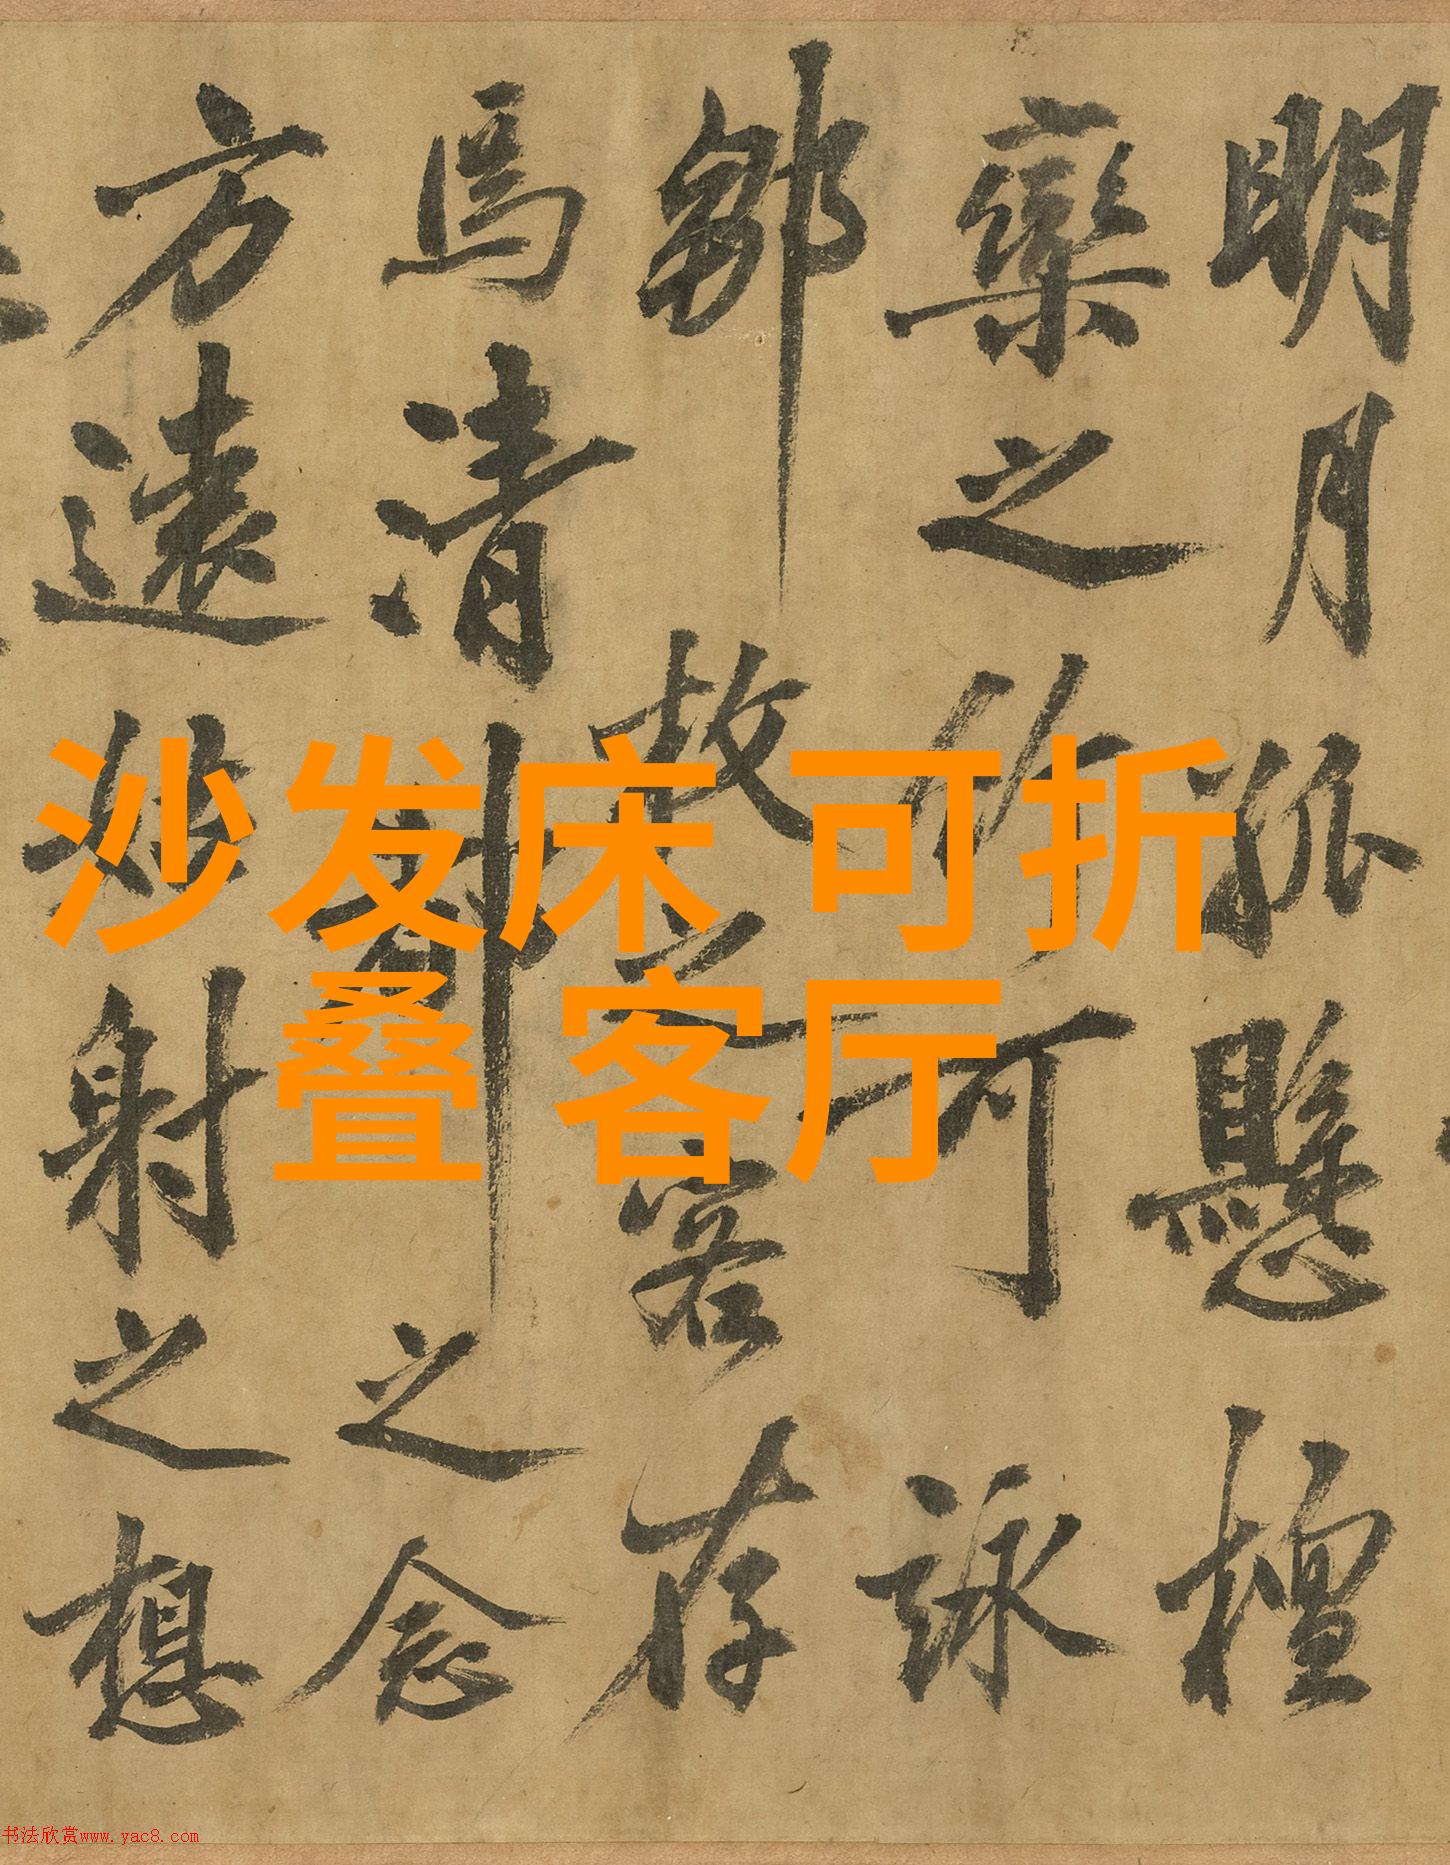 明月孤懸檀
欒之竹可詠
鄒枚之客存
焉清之念
方遠姑射之想
沙发床 可折
叠 客厅
书法欣赏www.yac8.com